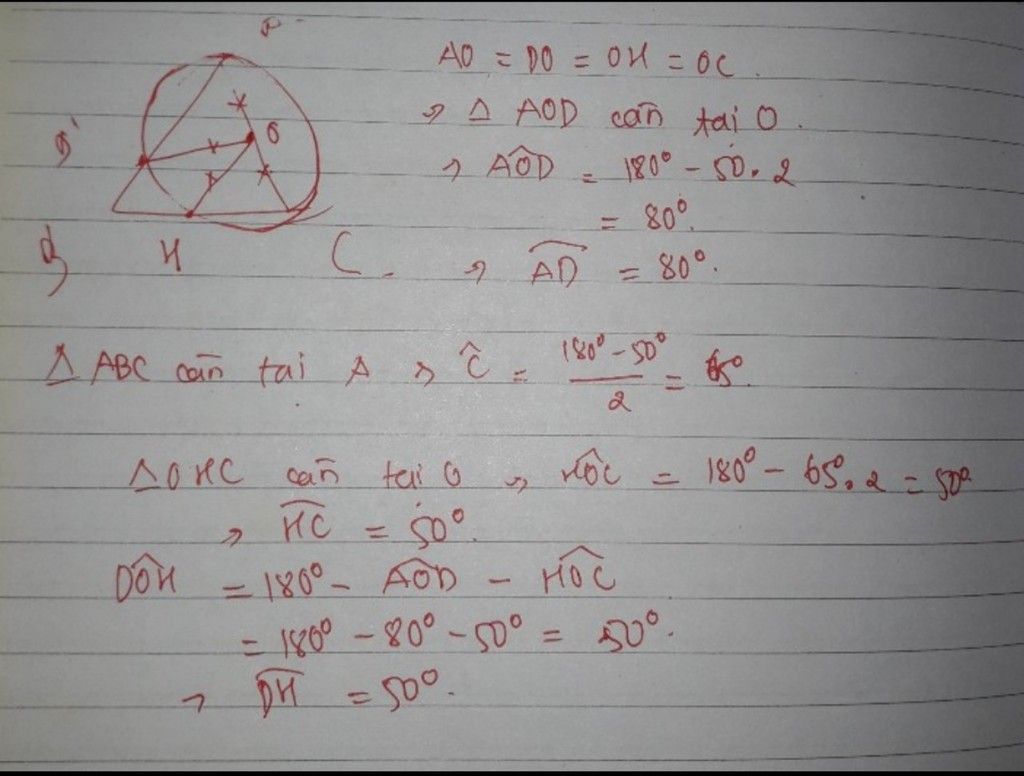 O
H
C
AO = DO = OH = OC.
→ Δ AOD cân tại O.
→ AÔD = 180° - 50.2
= 80°.
→ A͡D = 80°.
Δ ABC cân tại A → Ĉ = (180° - 50°)/2 = 65°.
Δ OHC cân tại O → HÔC = 180° - 65°.2 = 50°
→ H͡C = 50°.
DÔH = 180° - AÔD - HÔC
= 180° - 80° - 50° = 50°.
→ D͡H = 50°.